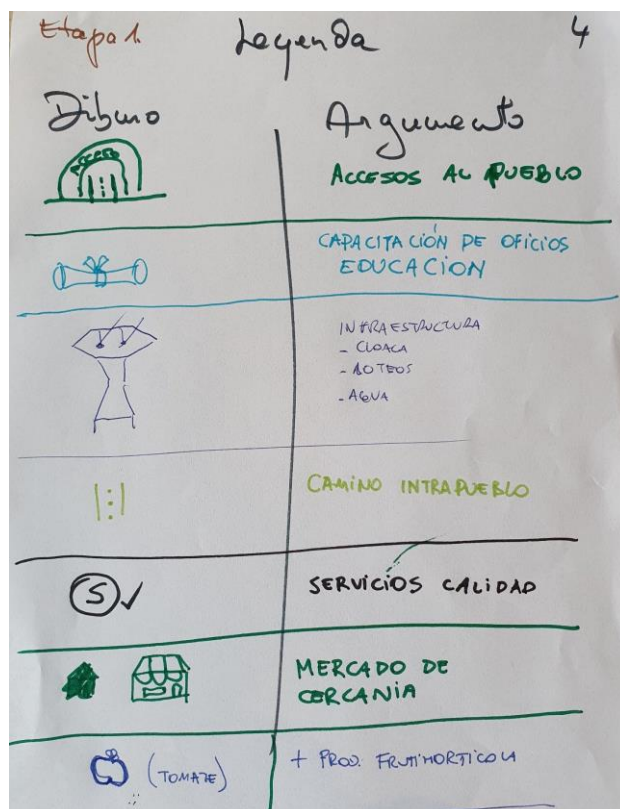 Etapa 1.
Leyenda
4
Dibujo
Argumento
ACCESO
ACCESOS AL PUEBLO
CAPACITACIÓN DE OFICIOS
EDUCACION
INFRAESTRUCTURA
- CLOACA
- LOTEOS
- AGUA
CAMINO INTRAPUEBLO
S
SERVICIOS CALIDAD
MERCADO DE
CERCANIA
(TOMATE)
+ PROD. FRUTIHORTICOLA